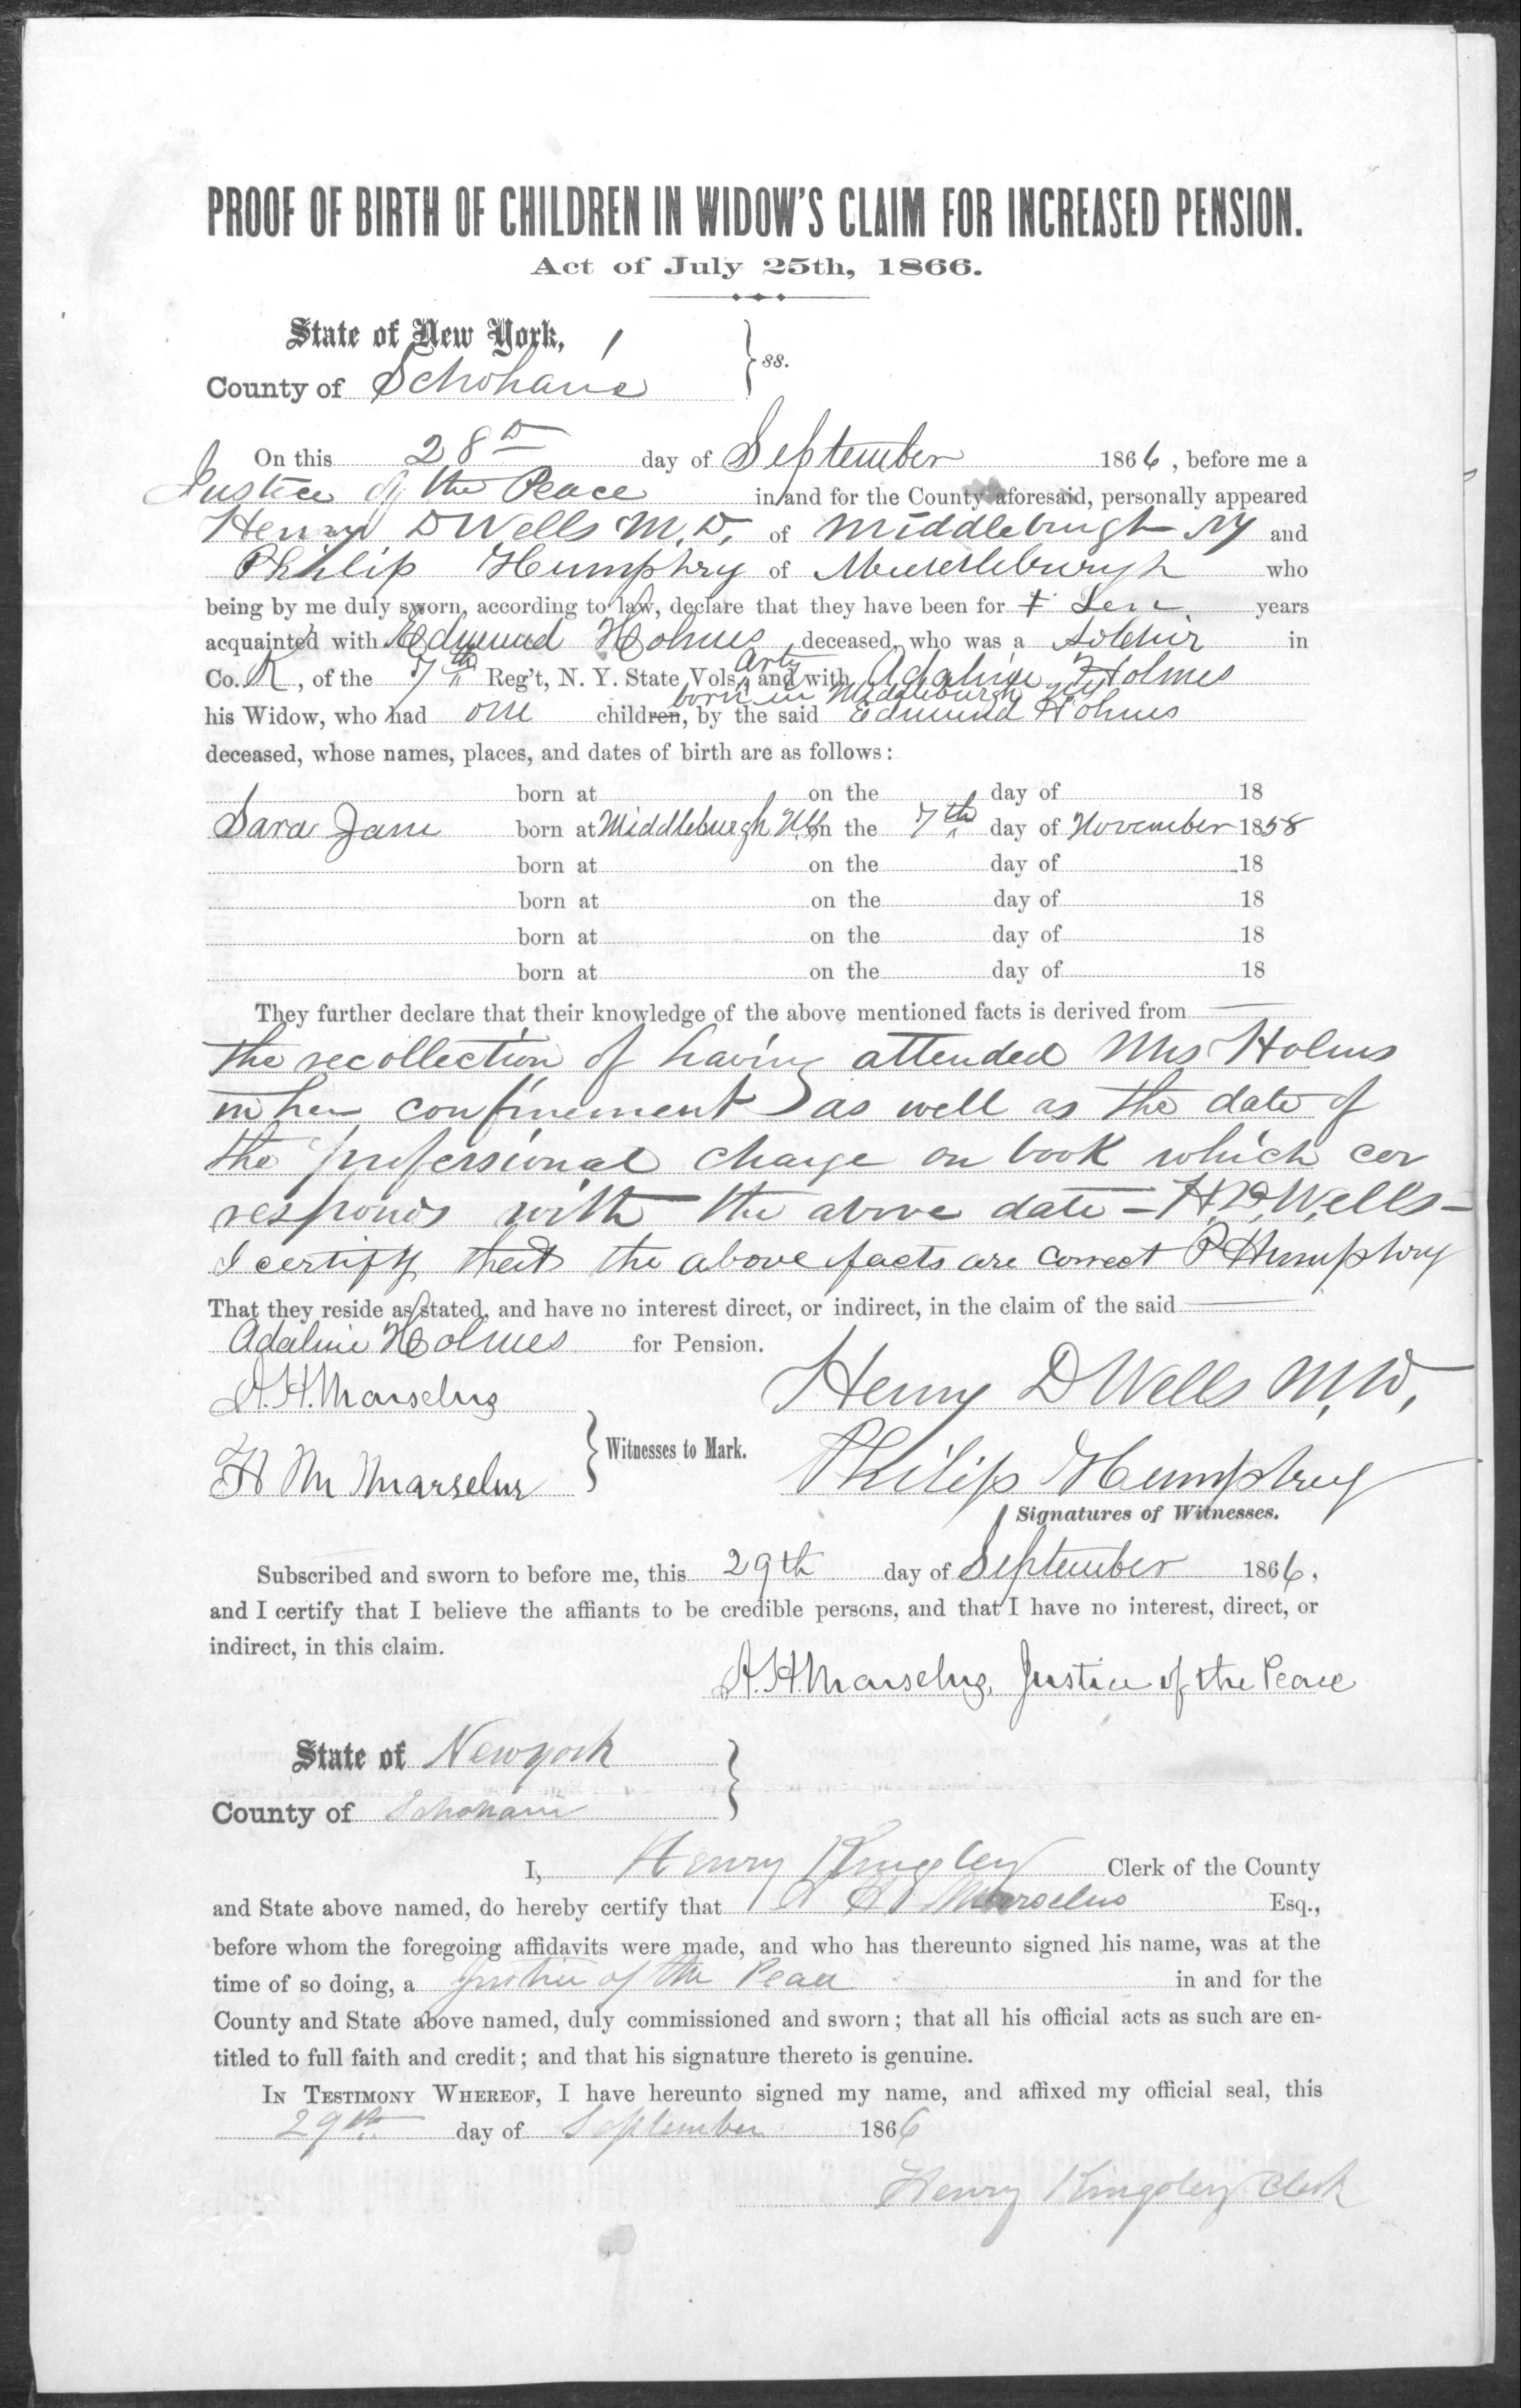 PROOF OF BIRTH OF CHILDREN IN WIDOW'S CLAIM FOR INCREASED PENSION.
Act of July 25th, 1866.
State of New York,
County of Schoharie } ss.
On this 28th day of September 1866, before me a
Justice of the Peace in and for the County aforesaid, personally appeared
Henry D Wells M.D. of Middleburgh NY and
Philip Humphry of Middleburgh who
being by me duly sworn, according to law, declare that they have been for ten years
acquainted with Edmund Holmes deceased, who was a soldier in
Co. K, of the 7th Reg't, N. Y. State Vols, Arty and with Adaline Holmes
born in Middleburgh NY
his Widow, who had one children, by the said Edmund Holmes
deceased, whose names, places, and dates of birth are as follows:
born at on the day of 18
Sara Jane born at Middleburgh NY on the 7th day of November 1858
born at on the day of 18
born at on the day of 18
born at on the day of 18
born at on the day of 18
They further declare that their knowledge of the above mentioned facts is derived from
the recollection of having attended Mrs Holmes
in her confinement as well as the date of
the professional charge on book which cor
responds with the above date - H.D. Wells -
I certify that the above facts are correct P Humphry
That they reside as stated, and have no interest direct, or indirect, in the claim of the said
Adaline Holmes for Pension.
A. H. Marselus Henry D Wells M.D.
H M Marselus } Witnesses to Mark. Philip Humphrey
Signatures of Witnesses.
Subscribed and sworn to before me, this 29th day of September 1866,
and I certify that I believe the affiants to be credible persons, and that I have no interest, direct, or
indirect, in this claim.
A. H. Marselus, Justice of the Peace
State of New york
County of Schoharie }
I, Henry Kingsley Clerk of the County
and State above named, do hereby certify that A H Marselus Esq.,
before whom the foregoing affidavits were made, and who has thereunto signed his name, was at the
time of so doing, a Justice of the Peace in and for the
County and State above named, duly commissioned and sworn; that all his official acts as such are en-
titled to full faith and credit; and that his signature thereto is genuine.
IN TESTIMONY WHEREOF, I have hereunto signed my name, and affixed my official seal, this
29th day of September 1866
Henry Kingsley Clerk